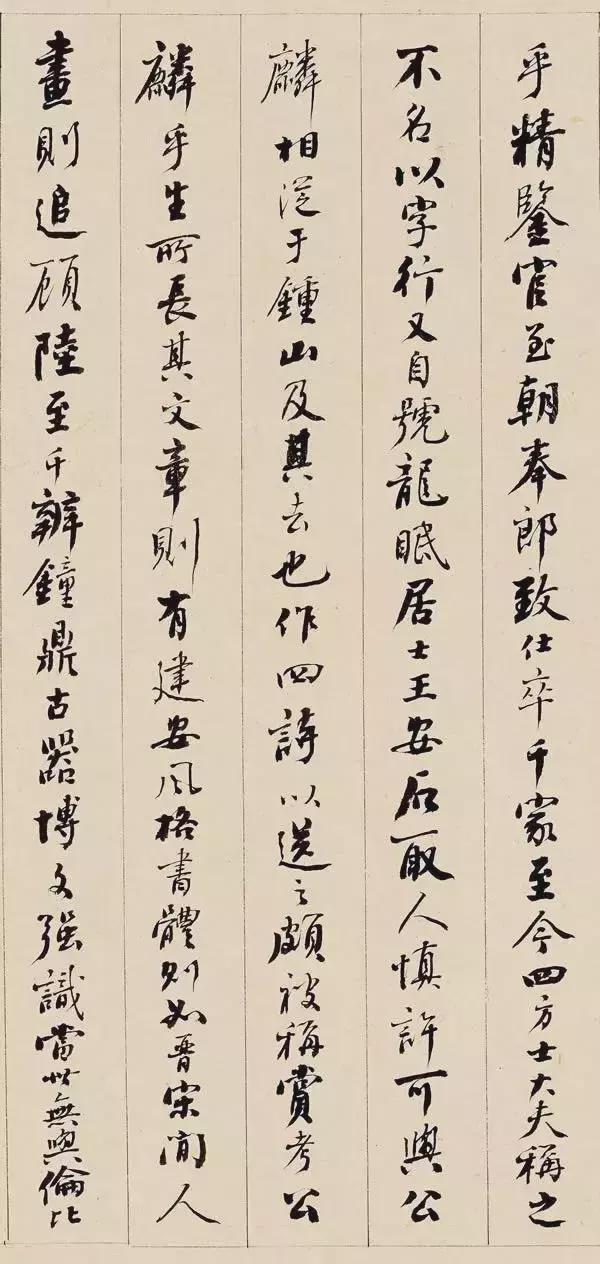 乎精鑒官至朝奉郎致仕卒于家至今四方士大夫稱之
不名以字行又自號龍眠居士王安石取人慎許可與公
麟相從于鍾山及其去也作四詩以送之頗被稱賞考公
麟乎生所長其文章則有建安風格書體則如晉宋間人
畫則追顧陸至于辨鐘鼎古器博文强識當世無與倫比